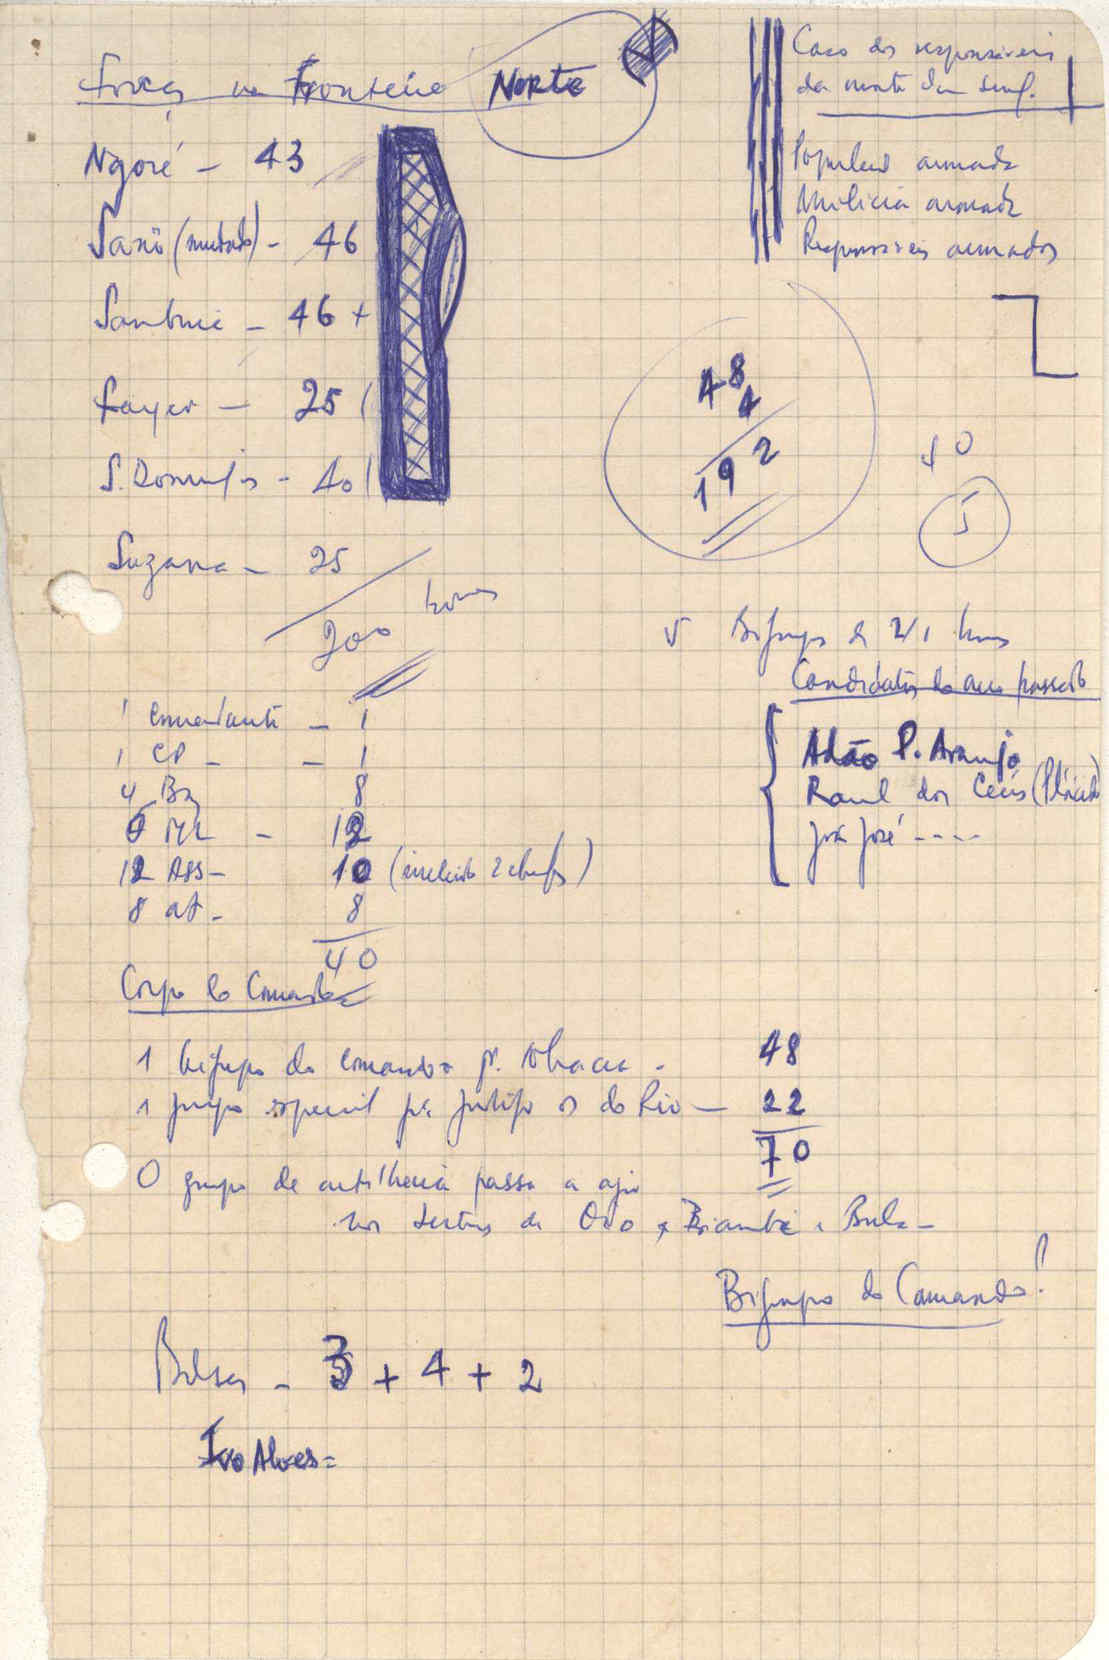 Forças na Fronteira Norte
Ngoré - 43
Sanó (mudado) - 46
Sambuiá - 46 +
Fayar - 25
S. Domingos - 40
Suzana - 25
200 homens
1 Comandante - 1
1 CP - - 1
4 Bz 8
6 ML - 12
12 Ass - 10 (incluindo 2 chefes)
8 at. - 8
40
Corpo do Comando
1 bigrupo do comando p.
1 grupo especial pa do Rio -
48
22
70
O grupo de artilheria passa a agir
nos sectores de Oio, Biambi e Bula -
Bigrupo do Comando!
Bolsas - 3 + 4 + 2
Ivo Alves =
Caso dos responsáveis
da morte
População armada
Milícia armada
Responsáveis armados
48
4
192
50
5
5 Bigrupos de homens
Candidatos do ano passado
Adão P. Araujo
Raul dos (Plácido)
José ----